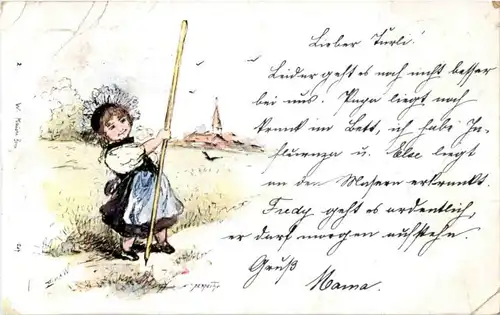 Lieber Türli!
Leider geht es noch nicht besser
bei uns. Papa liegt noch
krank im Bett, ich habe In-
fluenza u. Else liegt
an den Masern erkrankt.
Fredy geht es ordentlich,
er darf morgen aufstehn.
Gruß
Mama.